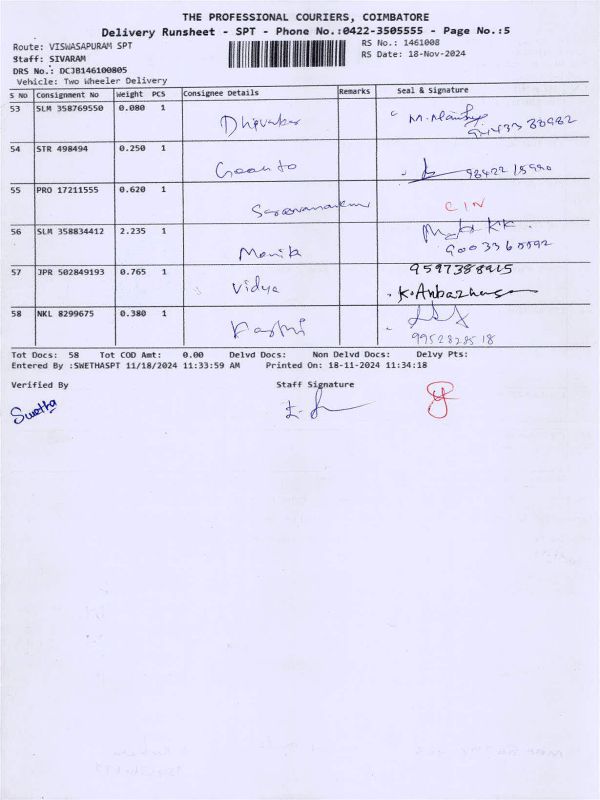 THE PROFESSIONAL COURIERS, COIMBATORE
Delivery Runsheet - SPT - Phone No.:0422-3505555 - Page No.:5
Route: VISWASAPURAM SPT
RS No.: 1461008
Staff: SIVARAM
RS Date: 18-Nov-2024
DRS No.: DCJB146100805
Vehicle: Two Wheeler Delivery
S No Consignment No Weight PCS Consignee Details Remarks Seal & Signature
53 SLM 358769550 0.080 1
54 STR 498494 0.250 1
55 PRO 17211555 0.620 1 CIN
56 SLM 358834412 2.235 1 Monik
57 JPR 502849193 0.765 1 Vidya 9597388915
K.Anbazhaga
58 NKL 8299675 0.380 1
9952828518
Tot Docs: 58 Tot COD Amt: 0.00 Delvd Docs: Non Delvd Docs: Delvy Pts:
Entered By :SWETHASPT 11/18/2024 11:33:59 AM Printed On: 18-11-2024 11:34:18
Verified By Staff Signature
Swetha